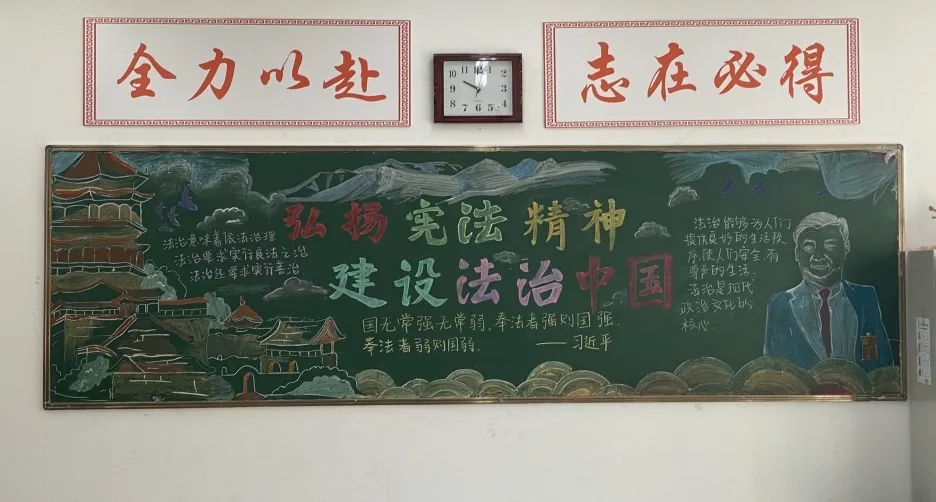 全力以赴
志在必得
弘扬宪法精神
建设法治中国
法治意味着依法治理
法治要求实行良法之治
法治还要求实行善治
国无常强无常弱.奉法者强则国强.
奉法者弱则国弱.
——习近平
法治能够为人们
提供良好的生活秩
序,使人们安全、有
尊严的生活.
法治是现代
政治文化的
核心.
10 11 12 1 2 3 4 5 6 7 8 9